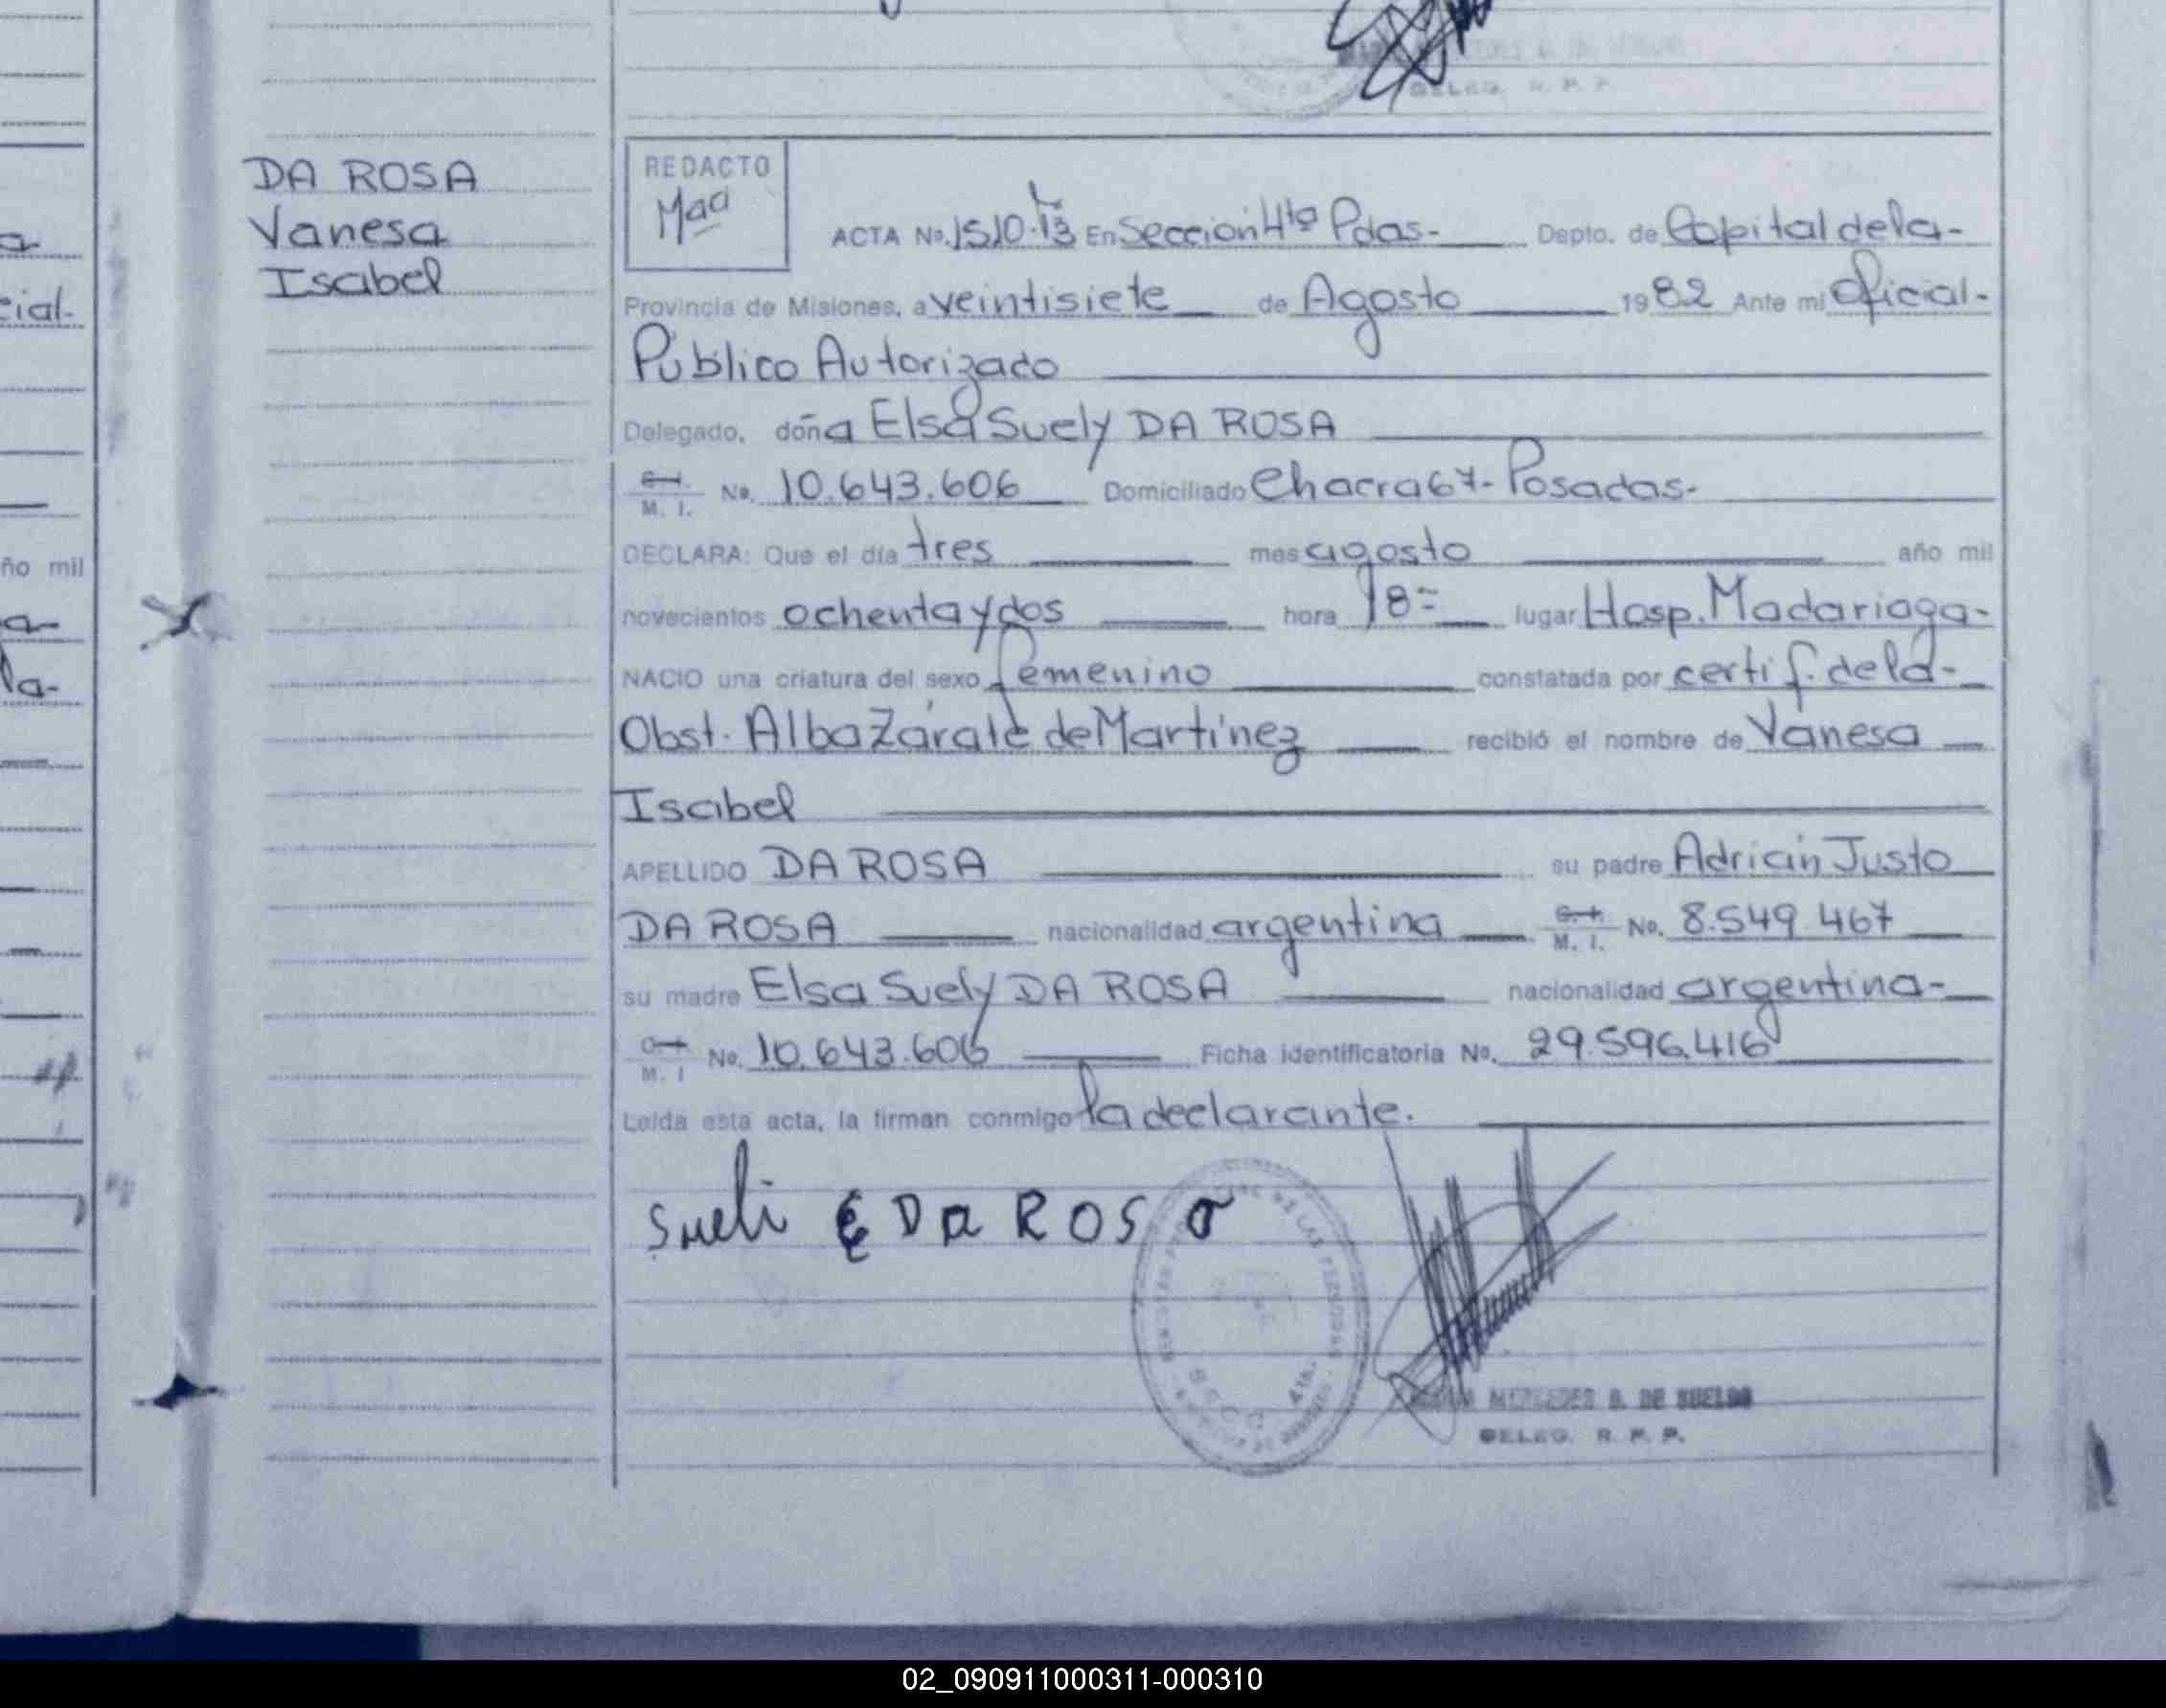 DELEG. R. P. P.
DA ROSA
Vanesa
Isabel
REDACTO
Mª
ACTA No. 1510. En Sección 4ta Pdas- Depto. de Capital de la-
Provincia de Misiones, a veintisiete de Agosto 1982 Ante mi Oficial-
Público Autorizado
Delegado, doña Elsa Suely DA ROSA
C. I. M. I. No. 10.643.606 Domiciliado Chacra 67- Posadas-
DECLARA: Que el día tres mes agosto año mil
novecientos ochenta y dos hora 18= lugar Hosp. Madariaga-
NACIO una criatura del sexo femenino constatada por certif. de la-
Obst. Alba Zárate de Martínez recibió el nombre de Vanesa
Isabel
APELLIDO DA ROSA su padre Adrián Justo
DA ROSA nacionalidad argentina M. I. No. 8.549.467
su madre Elsa Suely DA ROSA nacionalidad argentina-
M. I No. 10.643.606 Ficha identificatoria No. 29.596.416
Leída esta acta, la firman conmigo la declarante.
Sueli E DA ROSA
DE LAS PERSONAS
SECC. 4ta.
MERCEDES B. DE SUELDO
DELEG. R. P. P.
cial.
ño mil
la-
02_090911000311-000310